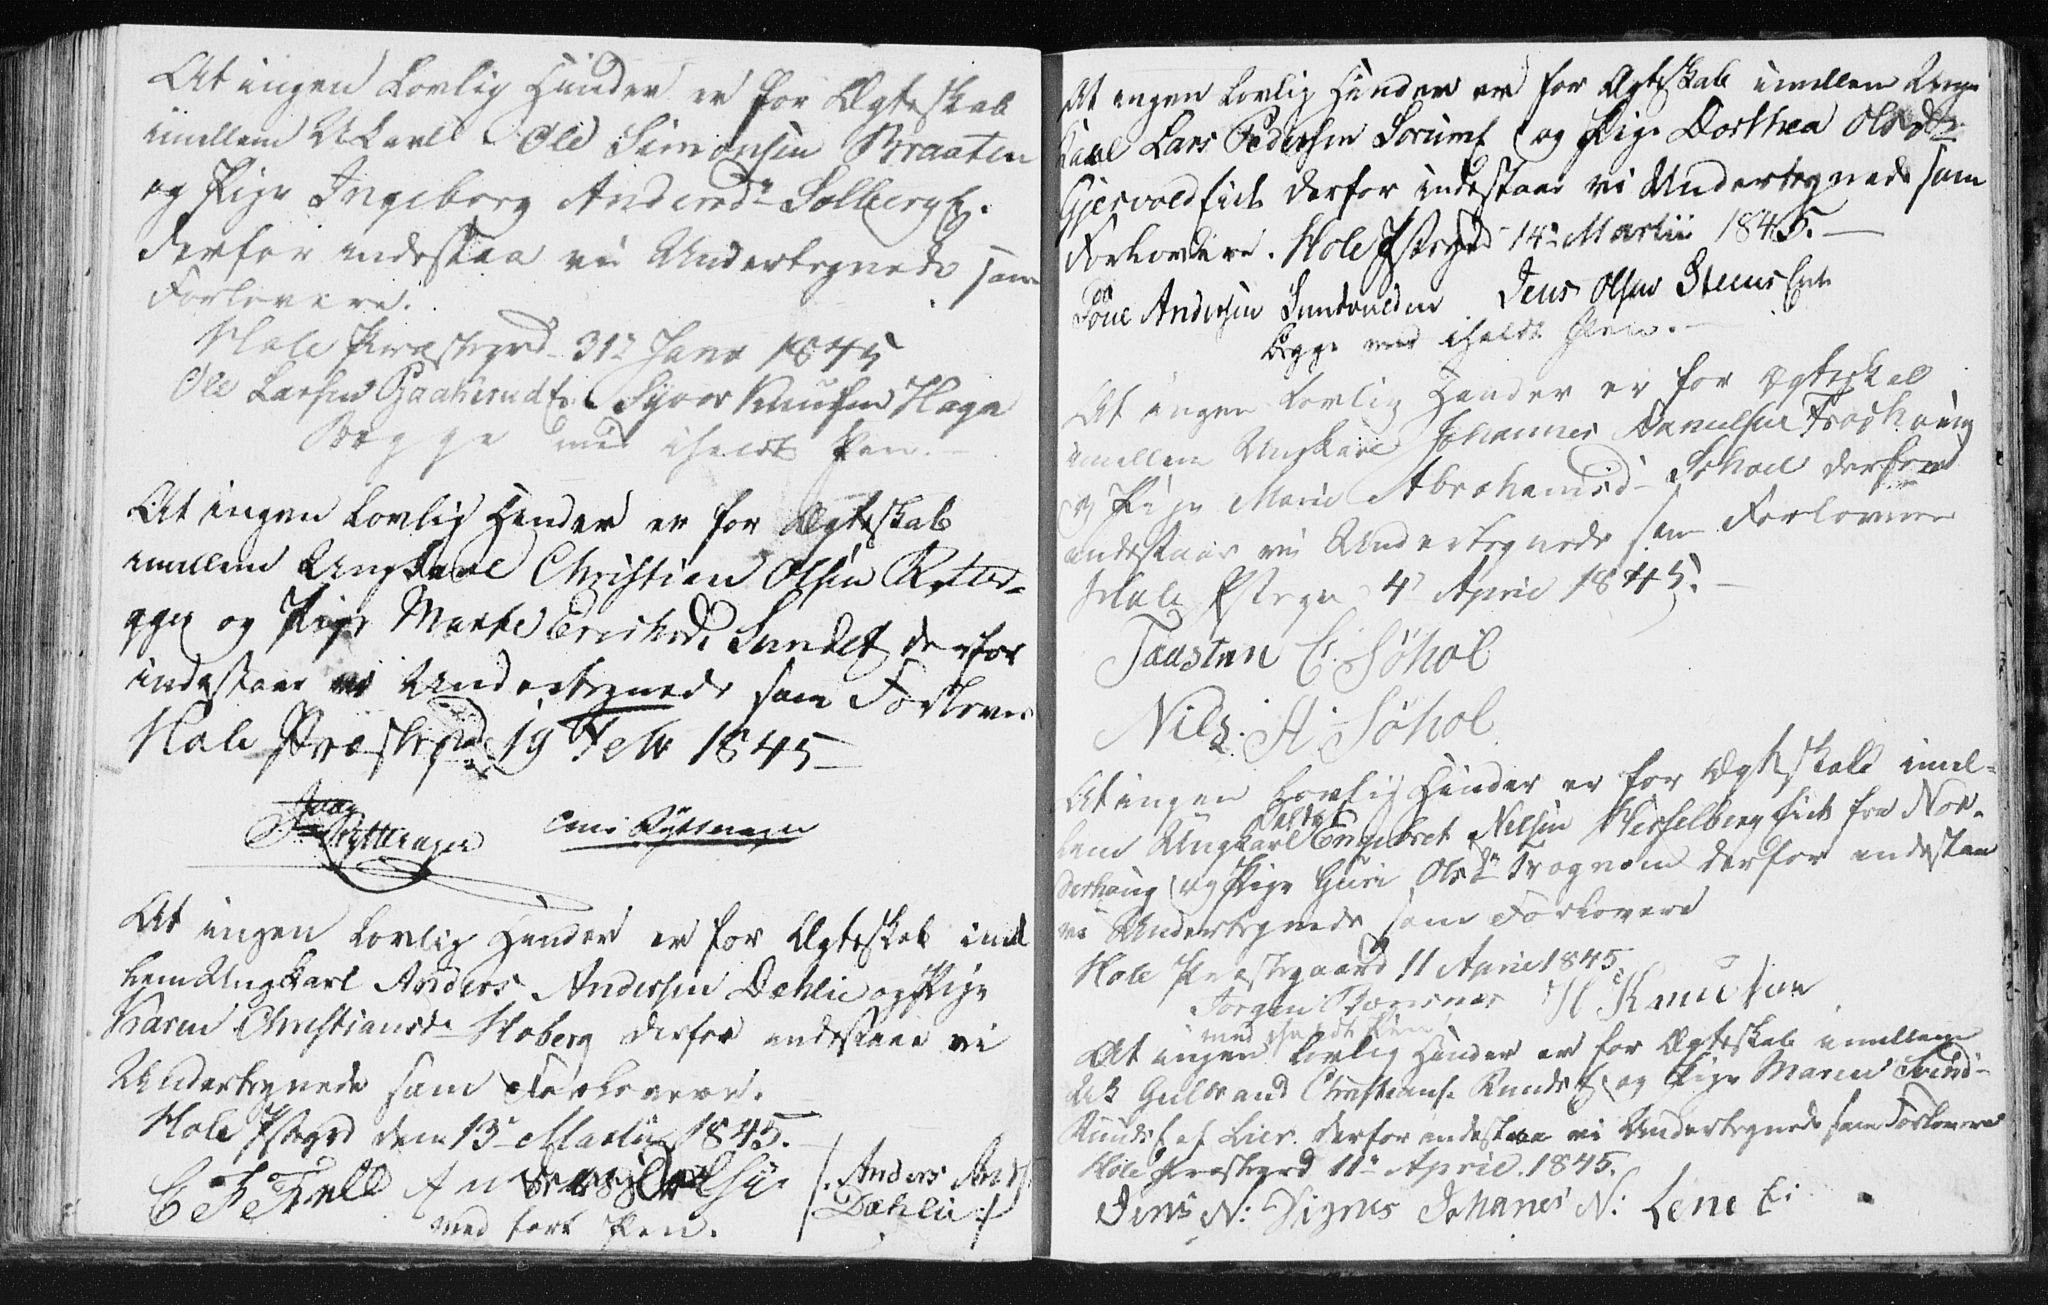 At ingen Lovlig Hinder er for Ægteskab
imellem Ukarl Ole Simonsen Braaten
og Pige Ingeborg Andersd: Solberg E.
derfor indestaa vi Undertegnede som
Forlovere.
Hole Præstegrd 31r Janr 1845
Ole Larsen E. Syver Knudsen Haga
Begge med iholdt Pen.
At ingen Lovlig Hinder er for Ægteskab
imellem Ungkarl Christian Olsen Rytter-
ager og Pige Marthe Erichsd: Sundet derfor
indestaae vi Undertegnede som Forlover
Hole Præstegrd 19 Febr 1845
Rytterager Rytterager
At ingen Lovlig Hinder er for Ægteskab imel
lem Ungkarl Anders Andersen Dehlie og Pige
Karen Christiansd: Hoberg derfor indestaae vi
Undertegnede som Forlovere.
Hole Pstgrd den 13 Martii 1845.
/: Anders And:
Dæhlie :/
med ført Pen.
At ingen Lovlig Hinder er for Ægteskab imellem Unge
Karl Lars Pedersen SorumE og Pige Dorthea Olsdtr
Gjesvold Eiet derfor indestaae vi Undertegnede som
Forlovere. Hole Pstegrd 14 Martii 1845.
Poul Andersen Sundvolden Jens Olsen Steens Eie
Begge med iholdt Pen.
At ingen Lovlig Hinder er for Ægteskab
imellem Ungkarl Johannes Danielsen Frøshoug
og Pige Marie Abrahamsd: Søhoel derfor
indestaae vi Undertegnede som Forlovere
Hole Pstegr 4 April 1845.
Taasten E. Søhol
Nils. A. Søhol
At ingen Lovlig Hinder er for Ægteskab imel-
lem Ungkarl Engebret Nilsen Hesselberg Eiet fra Nor-
derhoug og Pige Guri Olsdr Trognem derfor indestaa
vi Undertegnede som Forlovere
Hole Præstegaard 11 April 1845
Jørgen Bønsnes H Knudsen
med iholdt Pen
At ingen Lovlig Hinder er for Ægteskab imellem
UK Gulbrand Christians. Rundst. og Pige Maren
af Lier. derfor indestaa vi Undertegnede som Forlovere
Hole Præstegrd 11 April 1845.
Jens N: Vignes Johanes N: Lene Ei